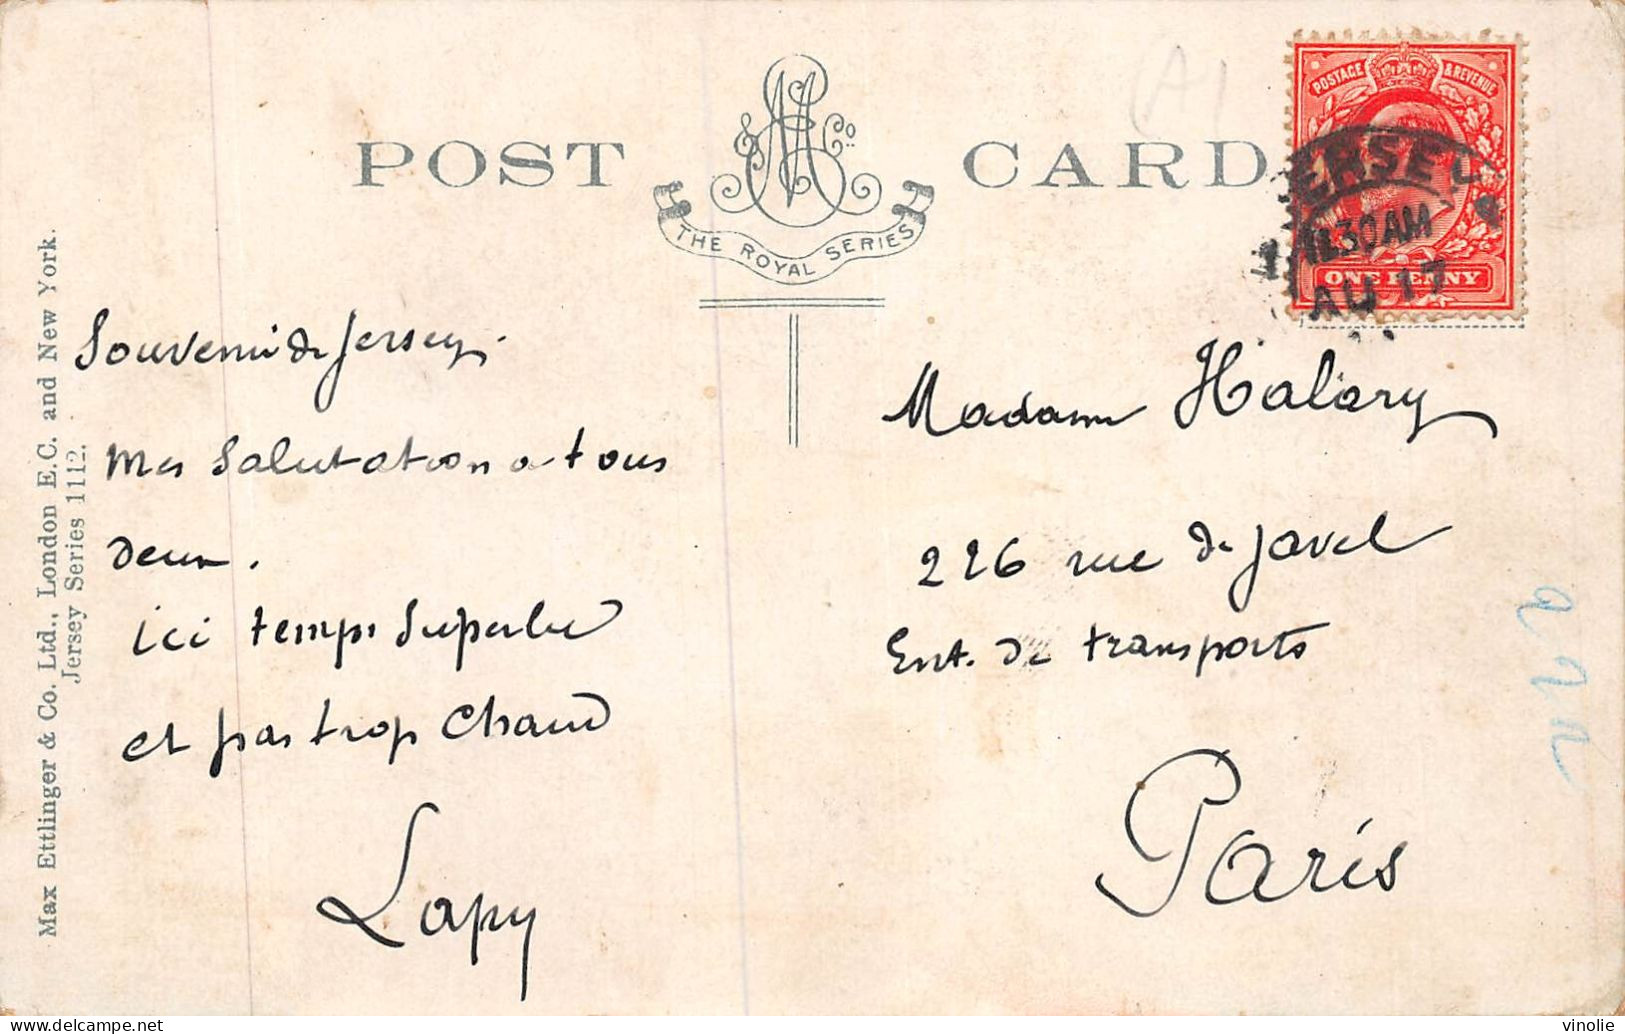 POST CARD
& Co.
THE ROYAL SERIES
POSTAGE & REVENUE
ONE PENNY
JERSEY
11.30AM
AU 17
Max Ettlinger & Co. Ltd., London E.C. and New York.
Jersey Series 1112.
Souvenir de Jersey.
mes salutation a tous
deux.
ici temps superbe
et pas trop chaud
Lapy
Madame Halary
226 rue de Javel
Ent. de transports
Paris
vinolie